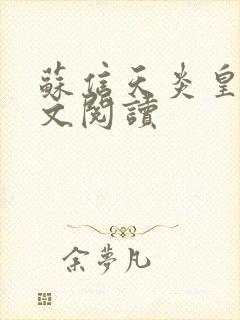 蘇信天炎皇
文閱讀
余夢凡